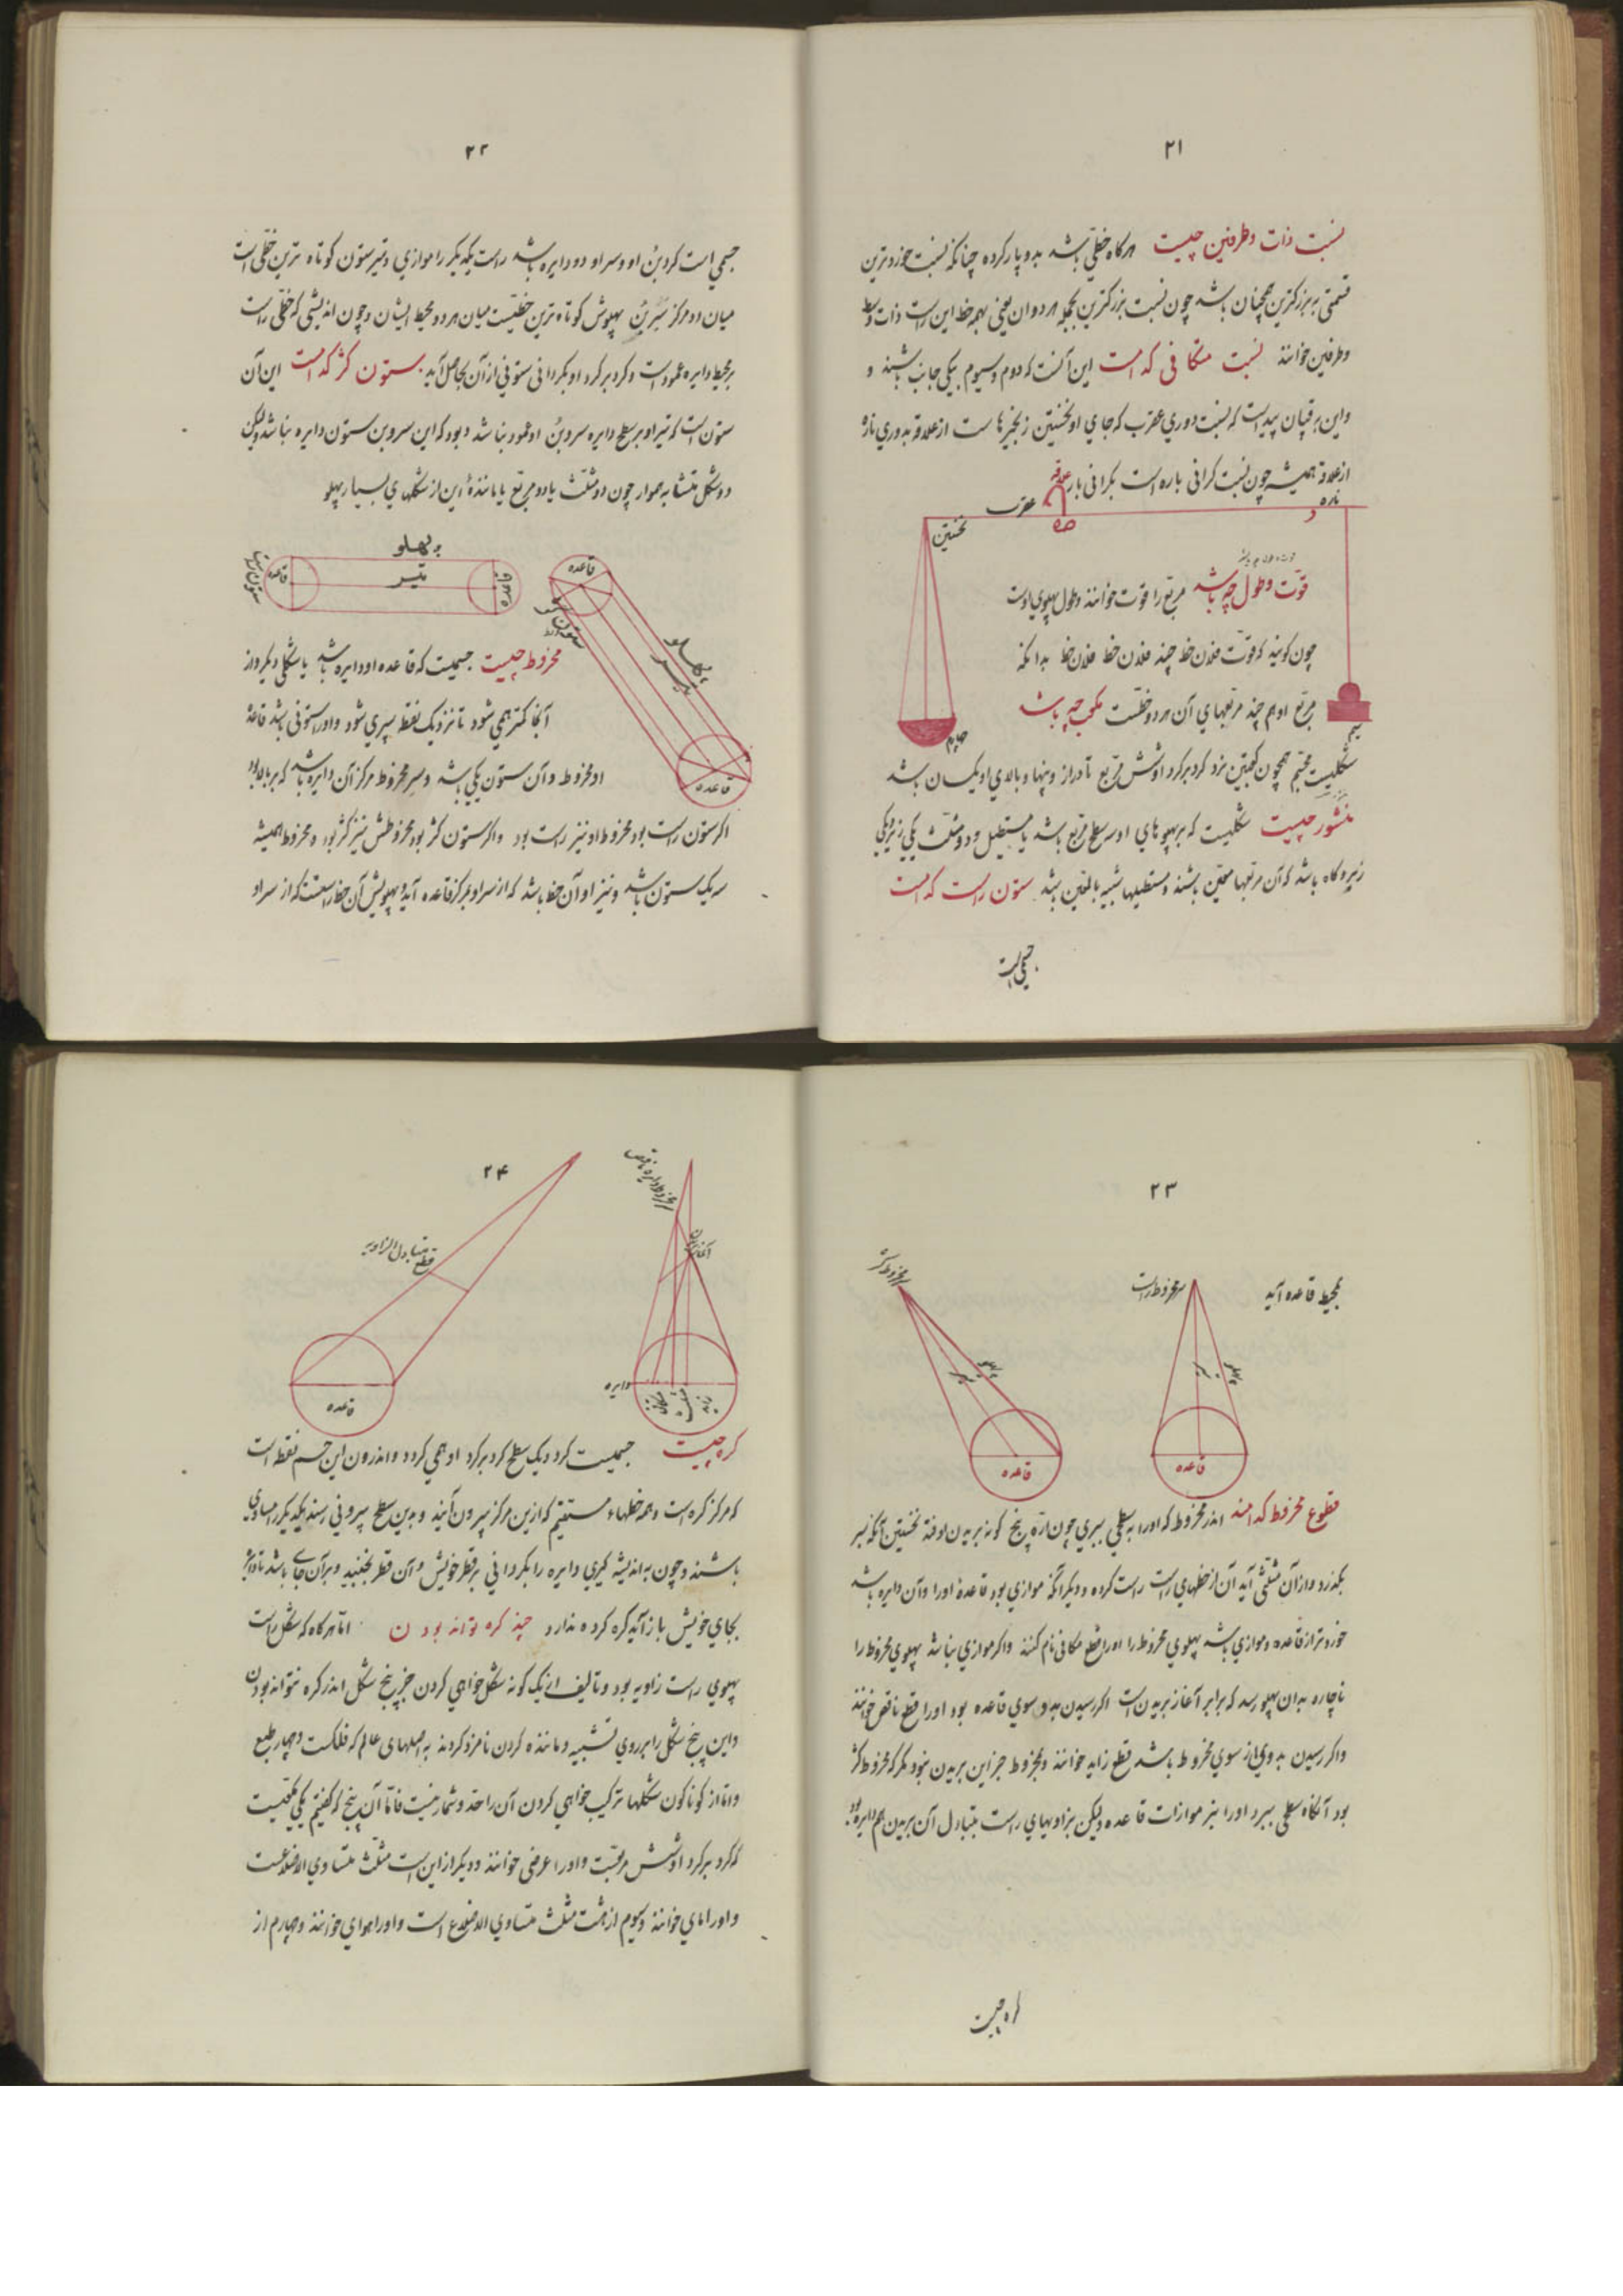 ۲۱
نسبت ذات وطرفین چیست هرگاه خطّی باشد بدو پاره کرده چنانکه نسبت خردترین
قسمتی به بزرگترین همچنان باشد چون نسبت بزرگترین بجمله هر دوان یعنی بهمه خط این راست ذات وسط
وطرفین خوانند نسبت متکافی کدامست این آنست که دوم وسیوم بیکی جانب باشند و
واین برقپان پیداست که نسبت دوری عقرب که جای او نخستین زنجیرهاست ازعلاقه بدوری ناره
ازعلاقه همیشه چون نسبت کرانی باره است بکرانی بار
علاقه
ناره
عقرب
نخستین
قوّت وطول چه باشد مربع را قوّت خوانند وطول پهلوی اوست
چون کویند که قوّت فلان خط چند فلان خط فلان خط بدانکه
مربع او هم چند مربعهای آن هر دو خطست مکعب چه باشد
شکلیست مجسّم همچون کعبتین نرد کرد برکرد او شش مربع تا دراز وپهنا وبالای او یکسان باشد
منشور چیست شکلیست که بر پهلوهای او سه سطح مربع باشد یا مستطیل ودو مثلث یکی زیر ویکی
زبر وکاه باشد که آن مربعها معیّن باشند ومستطیلها شبیه بالمعین باشد ستون راست کدامست
جسمی است
۲۲
جسمی است کرد بُن او وسر او دو دایره باشد راست یکدیکر را موازی وتیر ستون کوتاه ترین خطّی است
میان دو مرکز سَر وبُن پهلوش کوتاه ترین خطیست میان هر دو محیط ایشان وچون اندیشی که خطّی راست
بر محیط دایره عمود است وکرد برکرد او بکردانی ستونی از آن بحاصل آید ستون کژ کدامست این آن
ستون است که تیر او بر سطح دایره سر وبُن او عمود نباشد وبود که این سر وبن ستون دایره نباشد ولیکن
دو شکل متشابه هموار چون دو مثلث یا دو مربع یا مانندهٔ این از شکلهای بسیار پهلو
پهلو
تیر
قاعده
قاعده
قاعده
پهلو
تیر
قاعده
مخروط چیست جسمیست که قاعده او دایره باشد یا شکلی دیکر واز
آنجا کمتر همی شود تا نزدیک نقطه سپری شود واورا ستونی باشد قاعدهٔ
او مخروط وآن ستون یکی باشد وسر مخروط مرکز آن دایره باشد که بر بالا بود
اکر ستون راست بود مخروط او نیز راست بود واکر ستون کژ بود مخروطش نیز کژ بود ومخروط همیشه
سه یک ستون باشد وتیر او آن خط باشد که از سر او بمرکز قاعده آید وپهلویش آن خط راستست که از سر او
۲۳
بمحیط قاعده آید
سر مخروط راست
سر مخروط کژ
پهلو
تیر
پهلو
تیر
قاعده
قاعده
قطوع مخروط کدامند اندر مخروط که اورا به سطحی ببری چون ارّه پنج کونه بریدن اوفتد نخستین آنکه بر سر
بکذرد واز آن مثلثی آید آن از خطهای راست راست کرده ودیکر آنکه موازی بود قاعدهٔ اورا وآن دایره باشد
خوردتر از قاعده وموازی باشد پهلوی مخروط را اورا قطع مکافی نام کنند واکر موازی نباشد پهلوی مخروط را
ناچاره بدان پهلو رسد که برابر آغاز بریدن است اکر رسیدن بدو سوی قاعده بود اورا قطع ناقص خوانند
واکر رسیدن بدوی از سوی مخروط باشد قطع زاید خوانند ومخروط جز این بریدن نبود مکر که مخروط کژ
بود آنکاه سطحی ببرد اورا بنه موازات قاعده ولیکن بزاویهای راست متبادل آن بریدن هم دایره بود
کره چیست
۲۴
قطع متبادل الزاویه
قاعده
دایره
زاید
کره چیست جسمیست کرد ویک سطح کرد برکرد او همی کردد واندرون این جسم نقطه است
که مرکز کره است وهمه خطهاء مستقیم که ازین مرکز بیرون آیند وبدین سطح بیرونی رسند یکدیکر را مساوی
باشند وچون به اندیشه کیری دایره را بکردانی بر قطر خویش وآن قطر نجنبد وبر آن جای باشد تا دایره
بجای خویش باز آید کره کرده ندارد چند کره توانند بودن امّا هرکاه که شکل راست
پهلوی راست زاویه بود وتالیف از یک کونه شکل خواهی کردن جز پنج شکل اندر کره نتواند بودن
واین پنج شکل را بر روی تشبیه ومانده کردن نامزد کردند به اصلهای عالم که فلکست وچهار طبع
وامّا از کوناکون شکلها ترکیب خواهی کردن آن را حد وشمار نیست فامّا آن پنج که کفتیم یکی مکعبست
که کرد برکرد او شش مربعست واورا ارضی خوانند ودیکر از این است مثلث متساوی الاضلاعست
واورا مایی خوانند وسیوم از هشت مثلث متساوی الاضلاع است واورا هوای خوانند وچهارم از